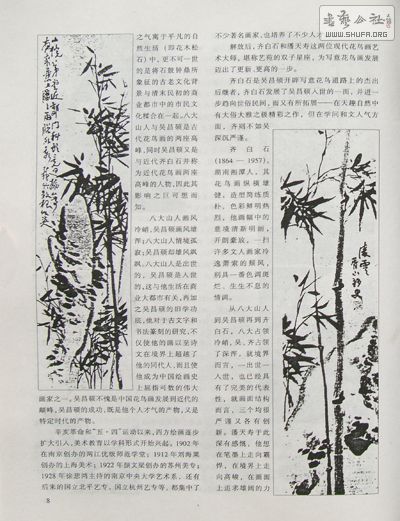 书艺公社
WWW.SHUFA.ORG
之气寓于平凡的自
然生活(即花木松
石)中。更不可一世
的是将石鼓钟鼎所
象征的古老文化背
景与清末民初的商
业都市中的市民文
化糅合在一起。八大
山人与吴昌硕是古
代花鸟画的两座高
峰,同时吴昌硕又是
与近代齐白石并称
为近代花鸟画两座
高峰的人物,因此其
影响之巨可想而
知。
八大山人画风
冷峭,吴昌硕画风雄
浑;八大山人情境孤
寂,吴昌硕雄风飒
飒。八大山人是出世
的,吴昌硕是入世
的,这与他生活在商
业大都市有关,再加
之吴昌硕的旧学功
底,他对于古文字和
书法篆刻的研究,不
仅使他的画以至诗
文在境界上超越了
他的同代人,而且使
他成为中国绘画史
上屈指可数的伟大
画家之一。吴昌硕不愧是中国花鸟画发展到近代的
巅峰。吴昌硕的成功,既是他个人才气的产物,又是
特定时代的产物。
辛亥革命和“五·四”运动以来,西方绘画逐步
扩大引入,美术教育以学科形式开始兴起。1902年
在南京创办的两江优级师范学堂;1912年刘海粟
创办的上海美术;1922年颜文梁创办的苏州美专;
1928年徐悲鸿主持的南京中央大学艺术系、还有
后来的国立北平艺专、国立杭州艺专等,都集中了
不少著名画家,也培养了不少人才
解放后,齐白石和潘天寿这两位现代花鸟画艺
术大师,堪称艺苑的双子星座,为写意花鸟画发展
迈出了更新、更高的一步。
齐白石是吴昌硕开辟写意花鸟道路上的杰出
后继者,齐白石发展了吴昌硕入世的一面,并进一
步趋向世俗民间,而又有所拓展——在天趣自然中
有大俗大雅之极精彩之作。但在学问和文人气方
面,齐则不如吴
深沉严谨。
齐白石
(1864—1957),
湖南湘潭人,其
花鸟画纵横雄
健,造型简炼质
朴,色彩鲜明热
烈。他画幅中的
意境清新明丽,
开朗豪放,一扫
许多文人画家冷
逸萧索的颓风,
别具一番色调斑
烂、生生不息的
情调。
从八大山人
到吴昌硕再到齐
白石,八大占领
冷峭,吴、齐占领
了深浑。就境界
而言,一出世一
入世,也已经具
有了完美的代表
性,就画面结构
而言,三个均很
严谨又各有创
新。潘天寿于此
深有感慨,他想
在笔墨上走向霸
悍,在境界上走
向高峻,在画面
上追求雄阔的力
8